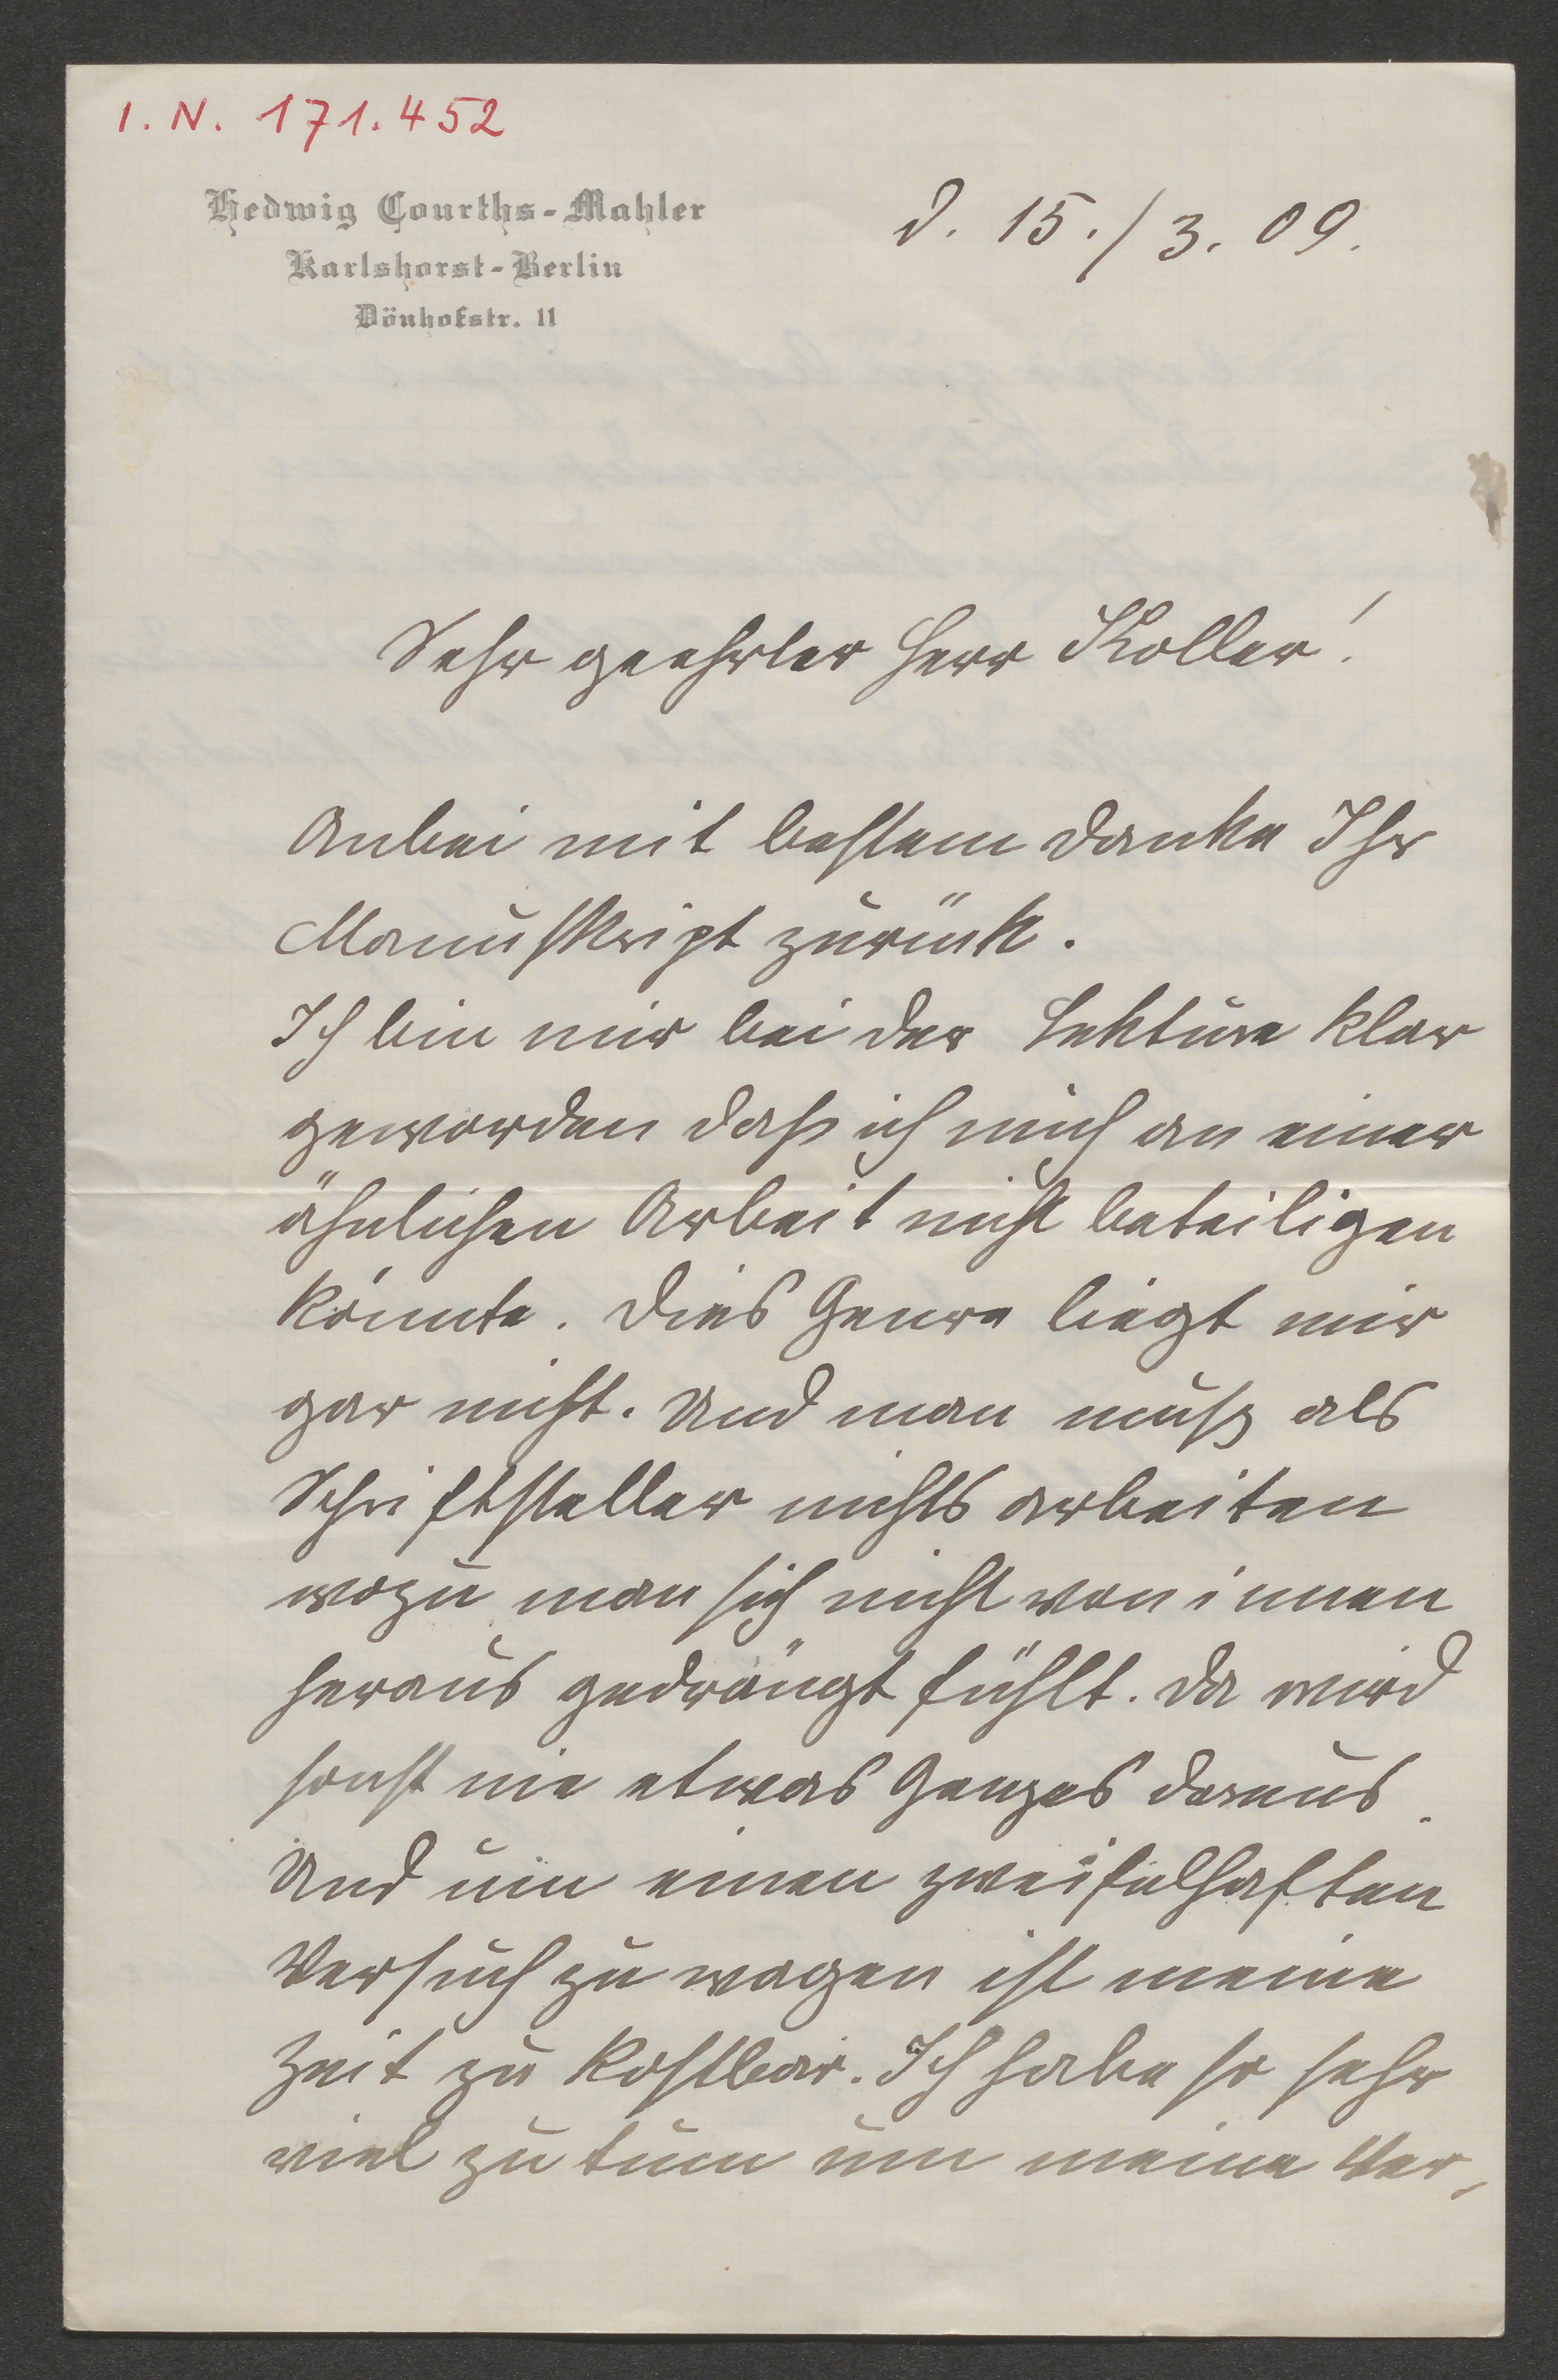 I. N. 171.452
Hedwig Courths-Mahler
Karlshorst-Berlin
Dönhofstr. 11
d. 15./3. 09.
Sehr geehrter Herr Koller!
Anbei mit bestem Danke Ihr
Manuskript zurück.
Ich bin mir bei der Lektüre klar
geworden dass ich mich an einer
ähnlichen Arbeit nicht beteiligen
könnte. Dies Genre liegt mir
gar nicht. Und man muß als
Schriftsteller nichts arbeiten
wozu man sich nicht von innen
heraus gedrängt fühlt. Da wird
sonst nie etwas Ganzes daraus.
Und um einen zweifelhaften
Versuch zu wagen ist meine
Zeit zu kostbar. Ich habe so sehr
viel zu tun um meine Ver-